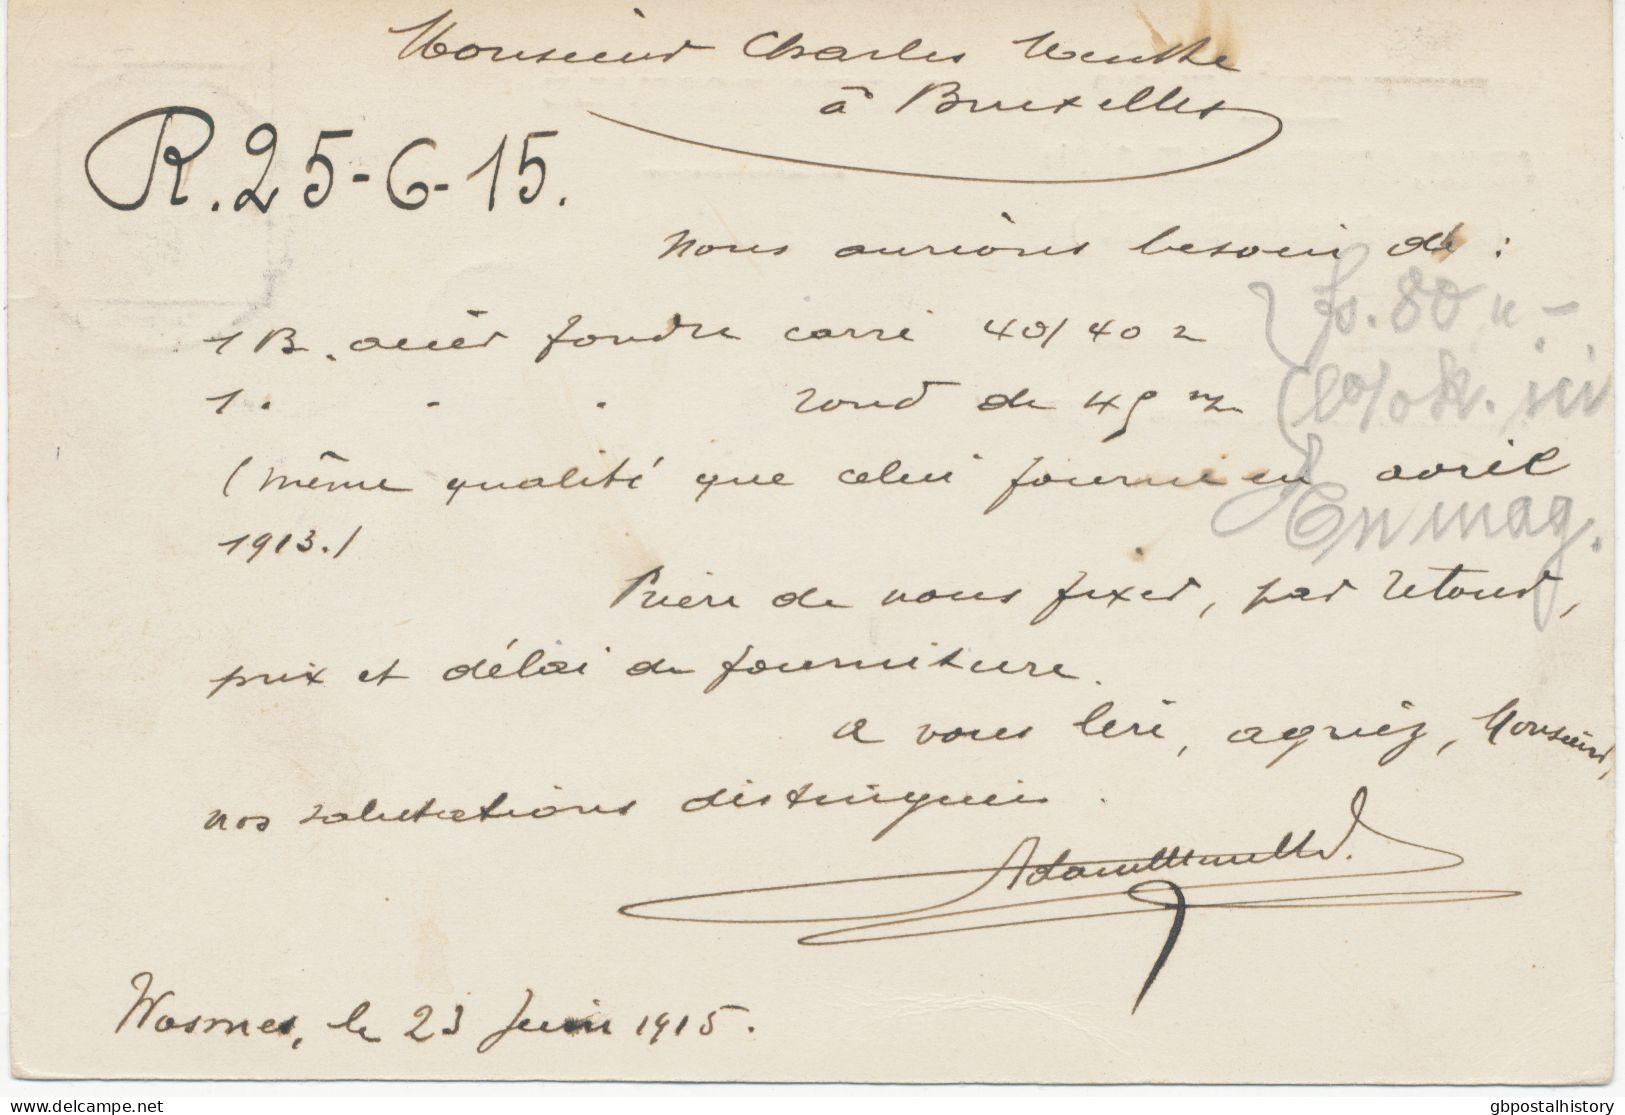 Monsieur Charles
à Bruxelles
R. 25-6-15.
Nous aurions besoin de :
fs. 80
1 B. acier fondre carré 40/40
1 " " " rond de 45 m/m
ici
(même qualité que celui fourni en avril
En mag.
1913.)
Prière de nous fixer, par retour,
prix et délai de fourniture.
A vous lire, agréez, Monsieur,
nos salutations distinguées.
Wasmes, le 23 Juin 1915.
delcampe.net
gbpostalhistory